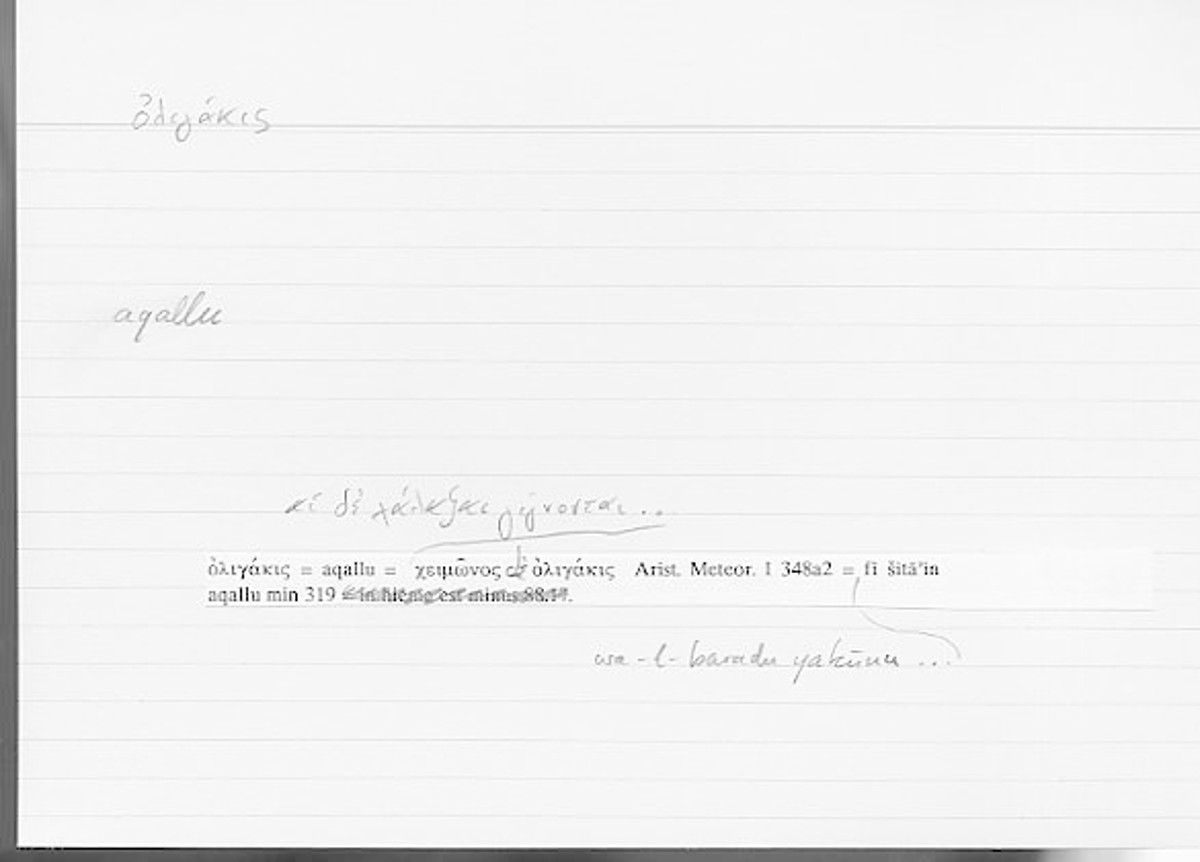 ὀλιγάκις
aqallu
αἱ δὲ χάλαζαι γίγνονται ...
ὀλιγάκις = aqallu = χειμῶνος δ' ὀλιγάκις Arist. Meteor. I 348a2 = fī šitāʾin
aqallu min 319 = in hieme est minus 88.17.
wa-l-baradu yakūnu ...